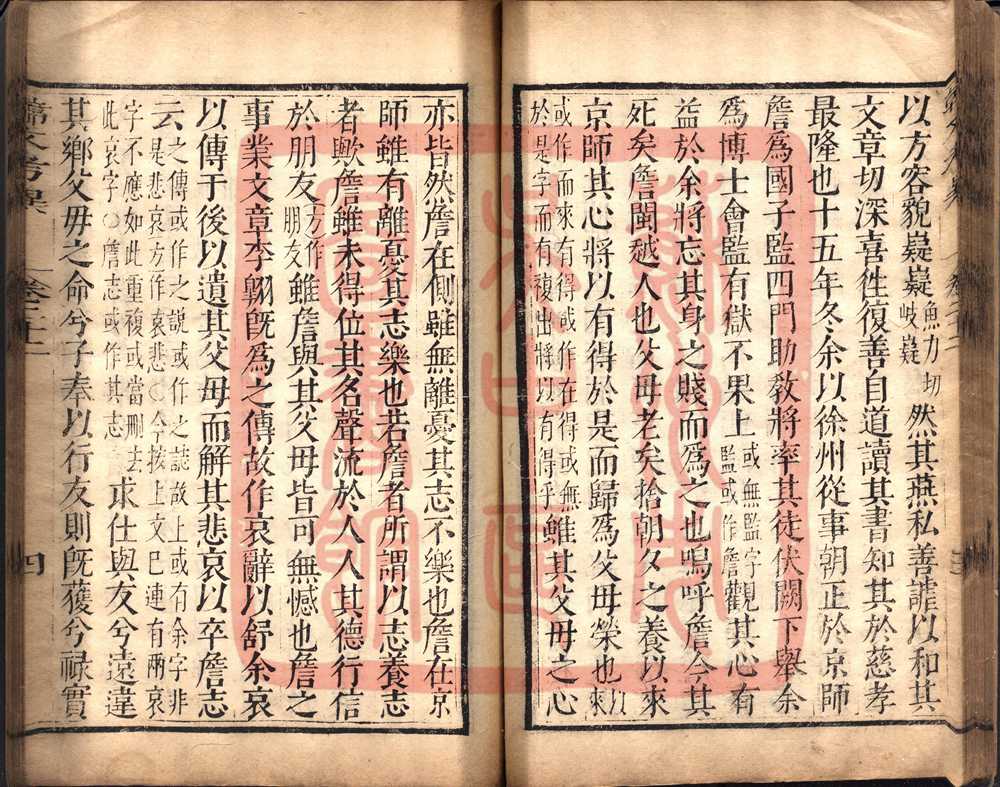 以方容貌嶷嶷魚力切岐嶷然其燕私善謔以和其
文章切深喜往復善自道讀其書知其於慈孝
最隆也十五年冬余以徐州從事朝正於京師
詹爲國子監四門助敎將率其徒伏闕下舉余
爲博士會監有獄不果上或無監字監或作詹觀其心有
益於余將忘其身之賤而爲之也嗚呼詹今其
死矣詹閩越人也父母老矣捨朝夕之養以來
京師其心將以有得於是而歸爲父母榮也以來
或作而來有得或作在得或無於是字而有複出將以有得乎雖其父母之心
亦皆然詹在側雖無離憂其志不樂也詹在京
師雖有離憂其志樂也若詹者所謂以志養志
者歟詹雖未得位其名聲流於人人其德行信
於朋友方作朋友雖詹與其父母皆可無憾也詹之
事業文章李翺旣爲之傳故作哀辭以舒余哀
以傳于後以遺其父母而解其悲哀以卒詹志
云之傳或作之說或作之誌故上或有余字非是悲哀方作哀悲○今按上文已連有兩哀
字不應如此重複或當刪去此哀字○詹志或作其志求仕與友兮遠違
其鄉父母之命兮子奉以行友則旣獲兮祿實
卷二十二
四